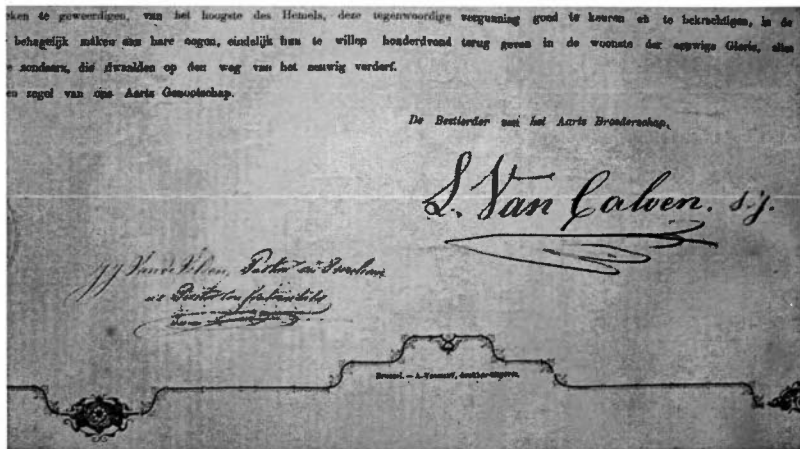 ken te geweerdigen, van het hoogste des Hemels, deze tegenwoordige vergunning goed te keuren en te bekrachtigen, in de
behagelijk maken aan hare oogen, eindelijk hun te willen honderdvoud terug geven in de woonste der eeuwige Glorie, alles
e zondaars, die dwaalden op den weg van het eeuwig verderf.
en zegel van ons Aarts Genootschap.
De Bestierder van het Aarts Broederschap,
L. Van Caloen. s.j.
J J Van de Velden, Pastor
Brussel. — A. drukker-uitgever.